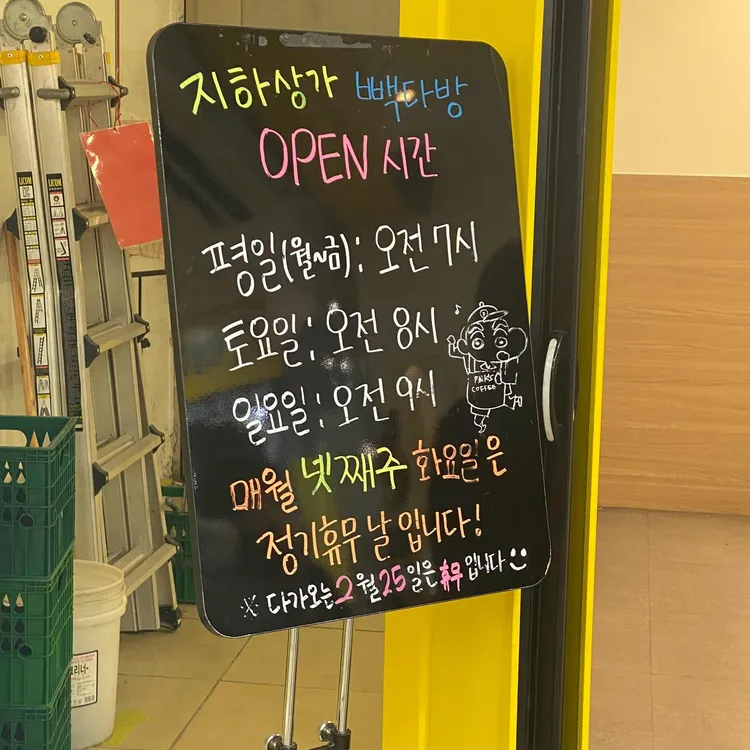 지하상가 빽다방
OPEN 시간
평일(월~금): 오전 7시
토요일: 오전 8시
일요일: 오전 9시
PAIKS
COFFEE
매월 넷째주 화요일은
정기휴무 날 입니다!
※ 다가오는 2월 25일은 휴무 입니다